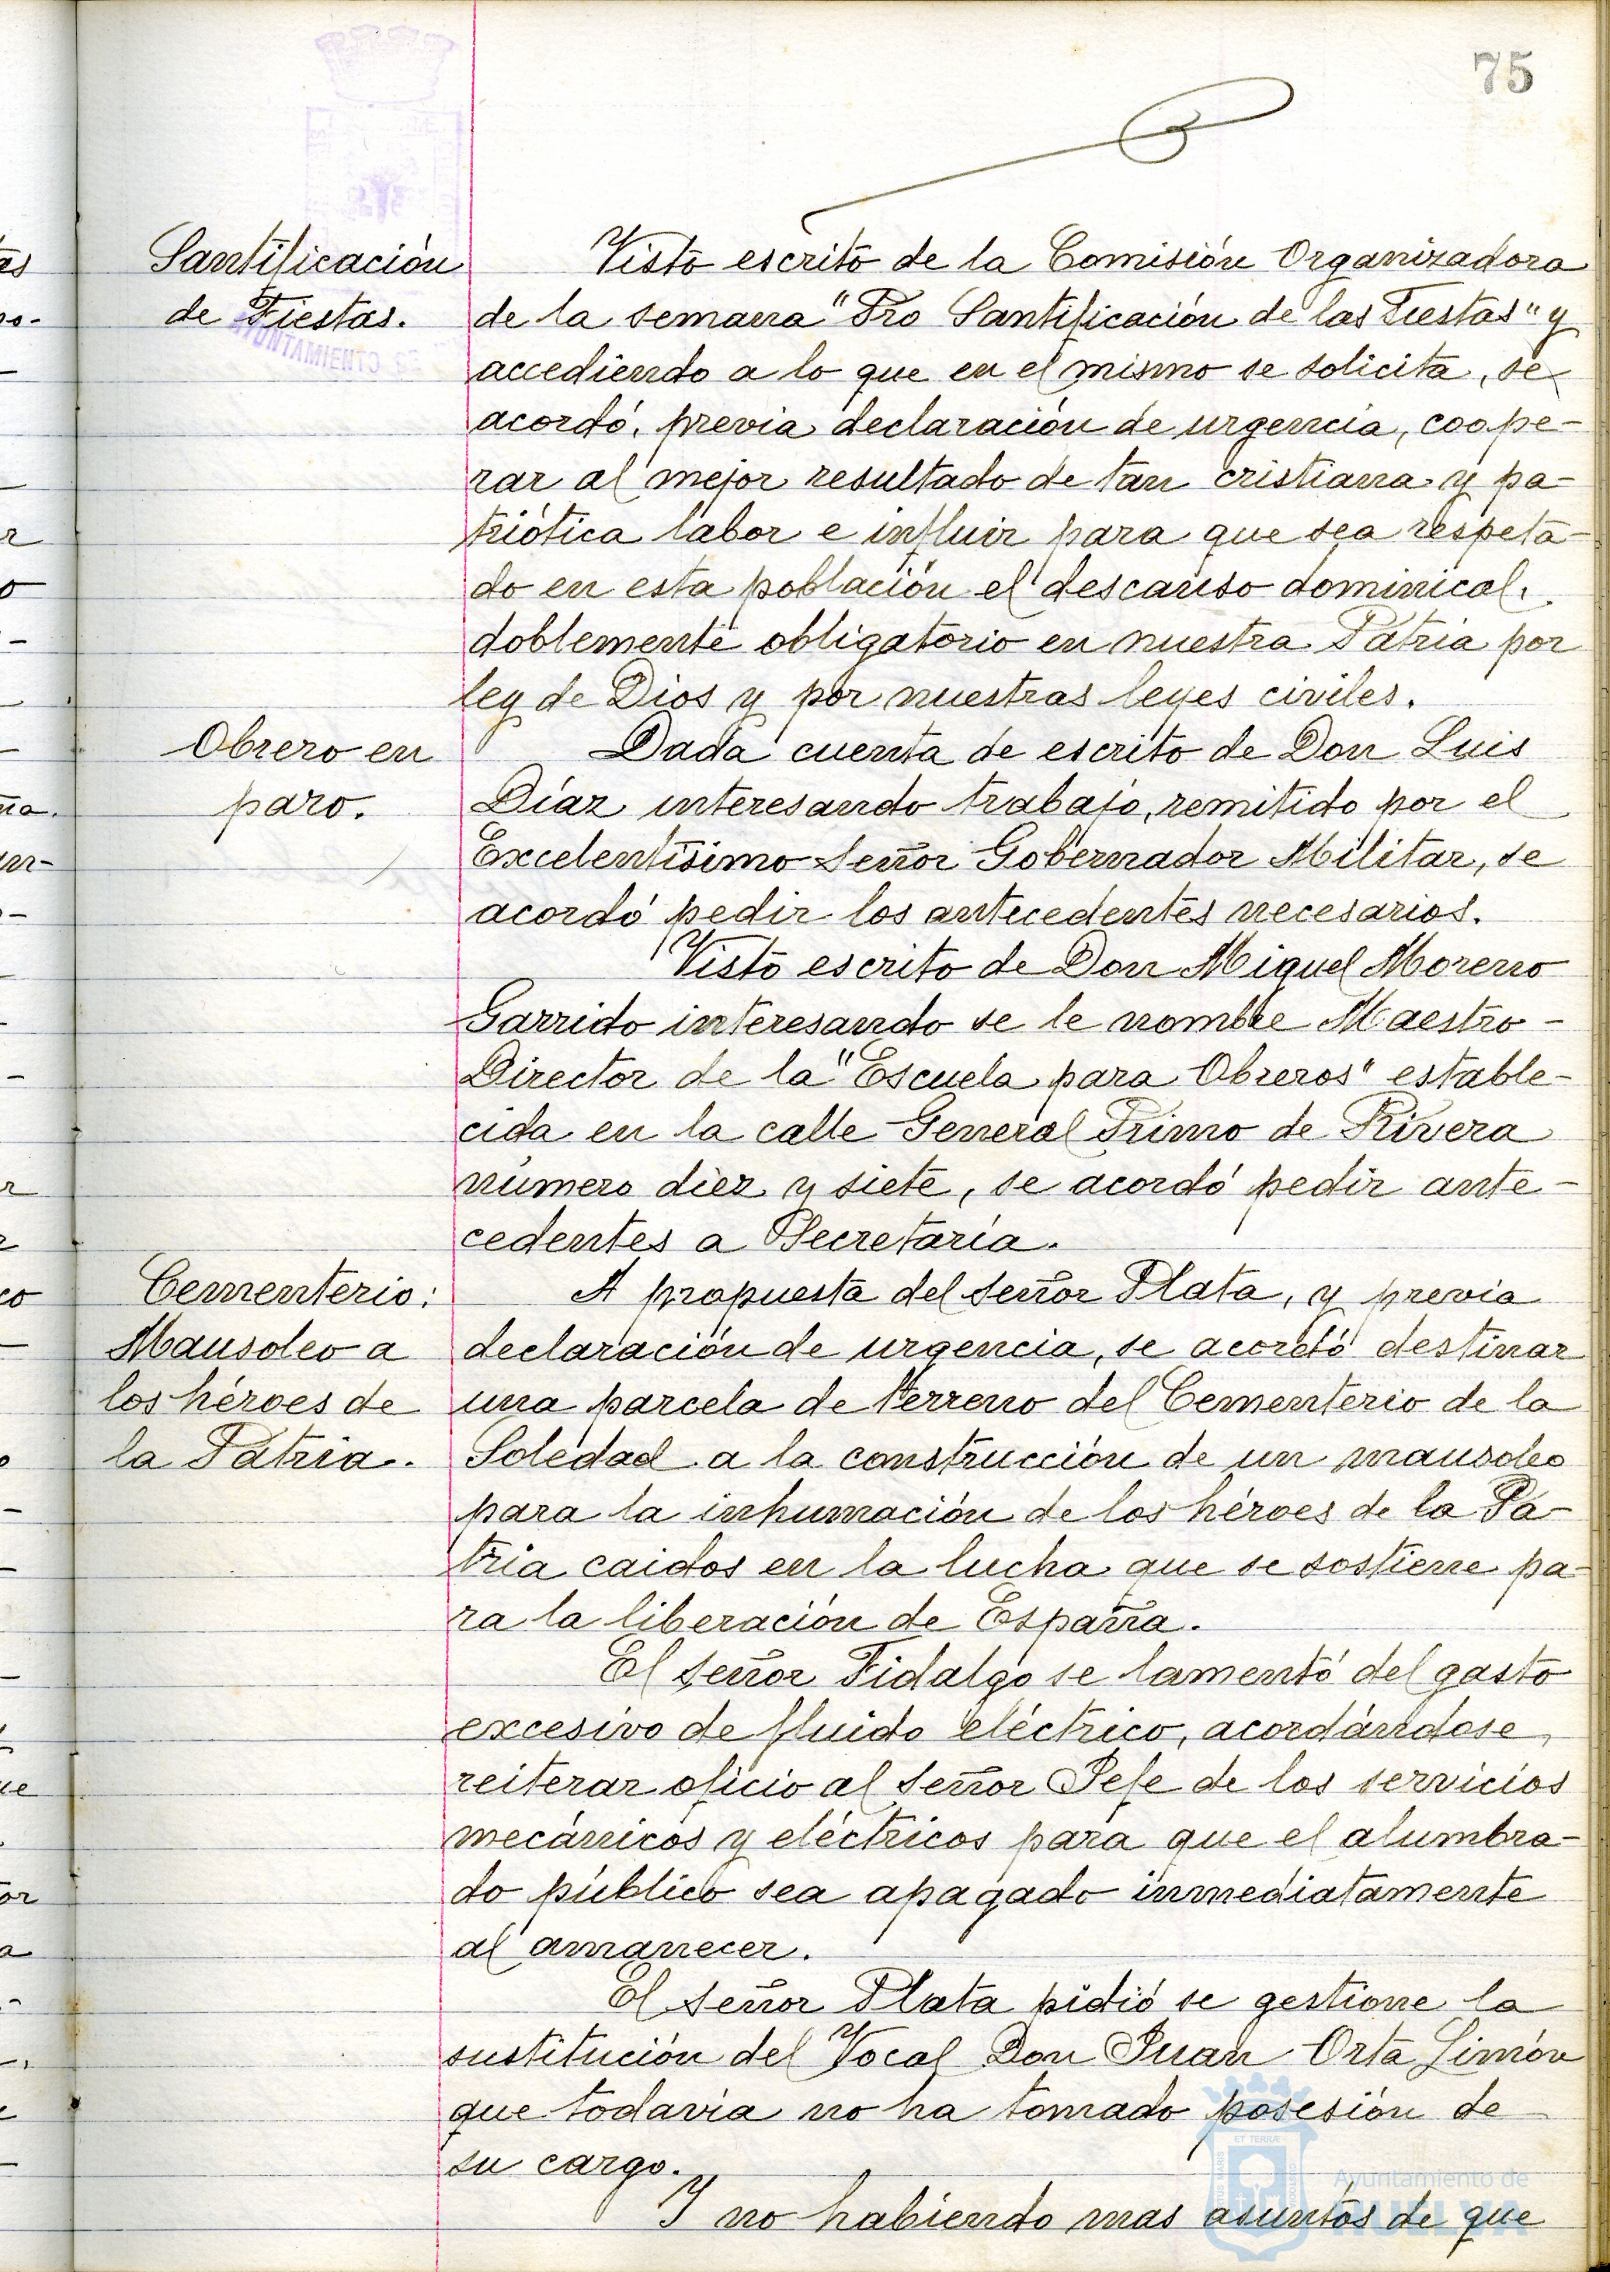 75
Santificación
de Fiestas.
Visto escrito de la Comisión Organizadora
de la semana "Pro Santificación de las Fiestas" y
accediendo a lo que en el mismo se solicita, se
acordó, previa declaración de urgencia, coope-
rar al mejor resultado de tan cristiana y pa-
triótica labor e influir para que sea respeta-
do en esta población el descanso dominical,
doblemente obligatorio en nuestra Patria por
ley de Dios y por nuestras leyes civiles.
Obrero en
paro.
Dada cuenta de escrito de Don Luis
Díaz interesando trabajo, remitido por el
Excelentísimo Señor Gobernador Militar, se
acordó pedir los antecedentes necesarios.
Visto escrito de Don Miguel Moreno
Garrido interesando se le nombre Maestro-
Director de la "Escuela para Obreros" estable-
cida en la calle General Primo de Rivera
número diez y siete, se acordó pedir ante-
cedentes a Secretaría.
Cementerio:
Mausoleo a
los héroes de
la Patria.
A propuesta del Señor Plata, y previa
declaración de urgencia, se acordó destinar
una parcela de terreno del Cementerio de la
Soledad a la construcción de un mausoleo
para la inhumación de los héroes de la Pa-
tria caidos en la lucha que se sostiene pa-
ra la liberación de España.
El Señor Fidalgo se lamentó del gasto
excesivo de fluido eléctrico, acordándose
reiterar oficio al Señor Jefe de los servicios
mecánicos y eléctricos para que el alumbra-
do público sea apagado inmediatamente
al amanecer.
El Señor Plata pidió se gestione la
sustitución del Vocal Don Juan Orta Limón
que todavía no ha tomado posesión de
su cargo.
Y no habiendo mas asuntos de que
AYUNTAMIENTO DE
Ayuntamiento de
HUELVA